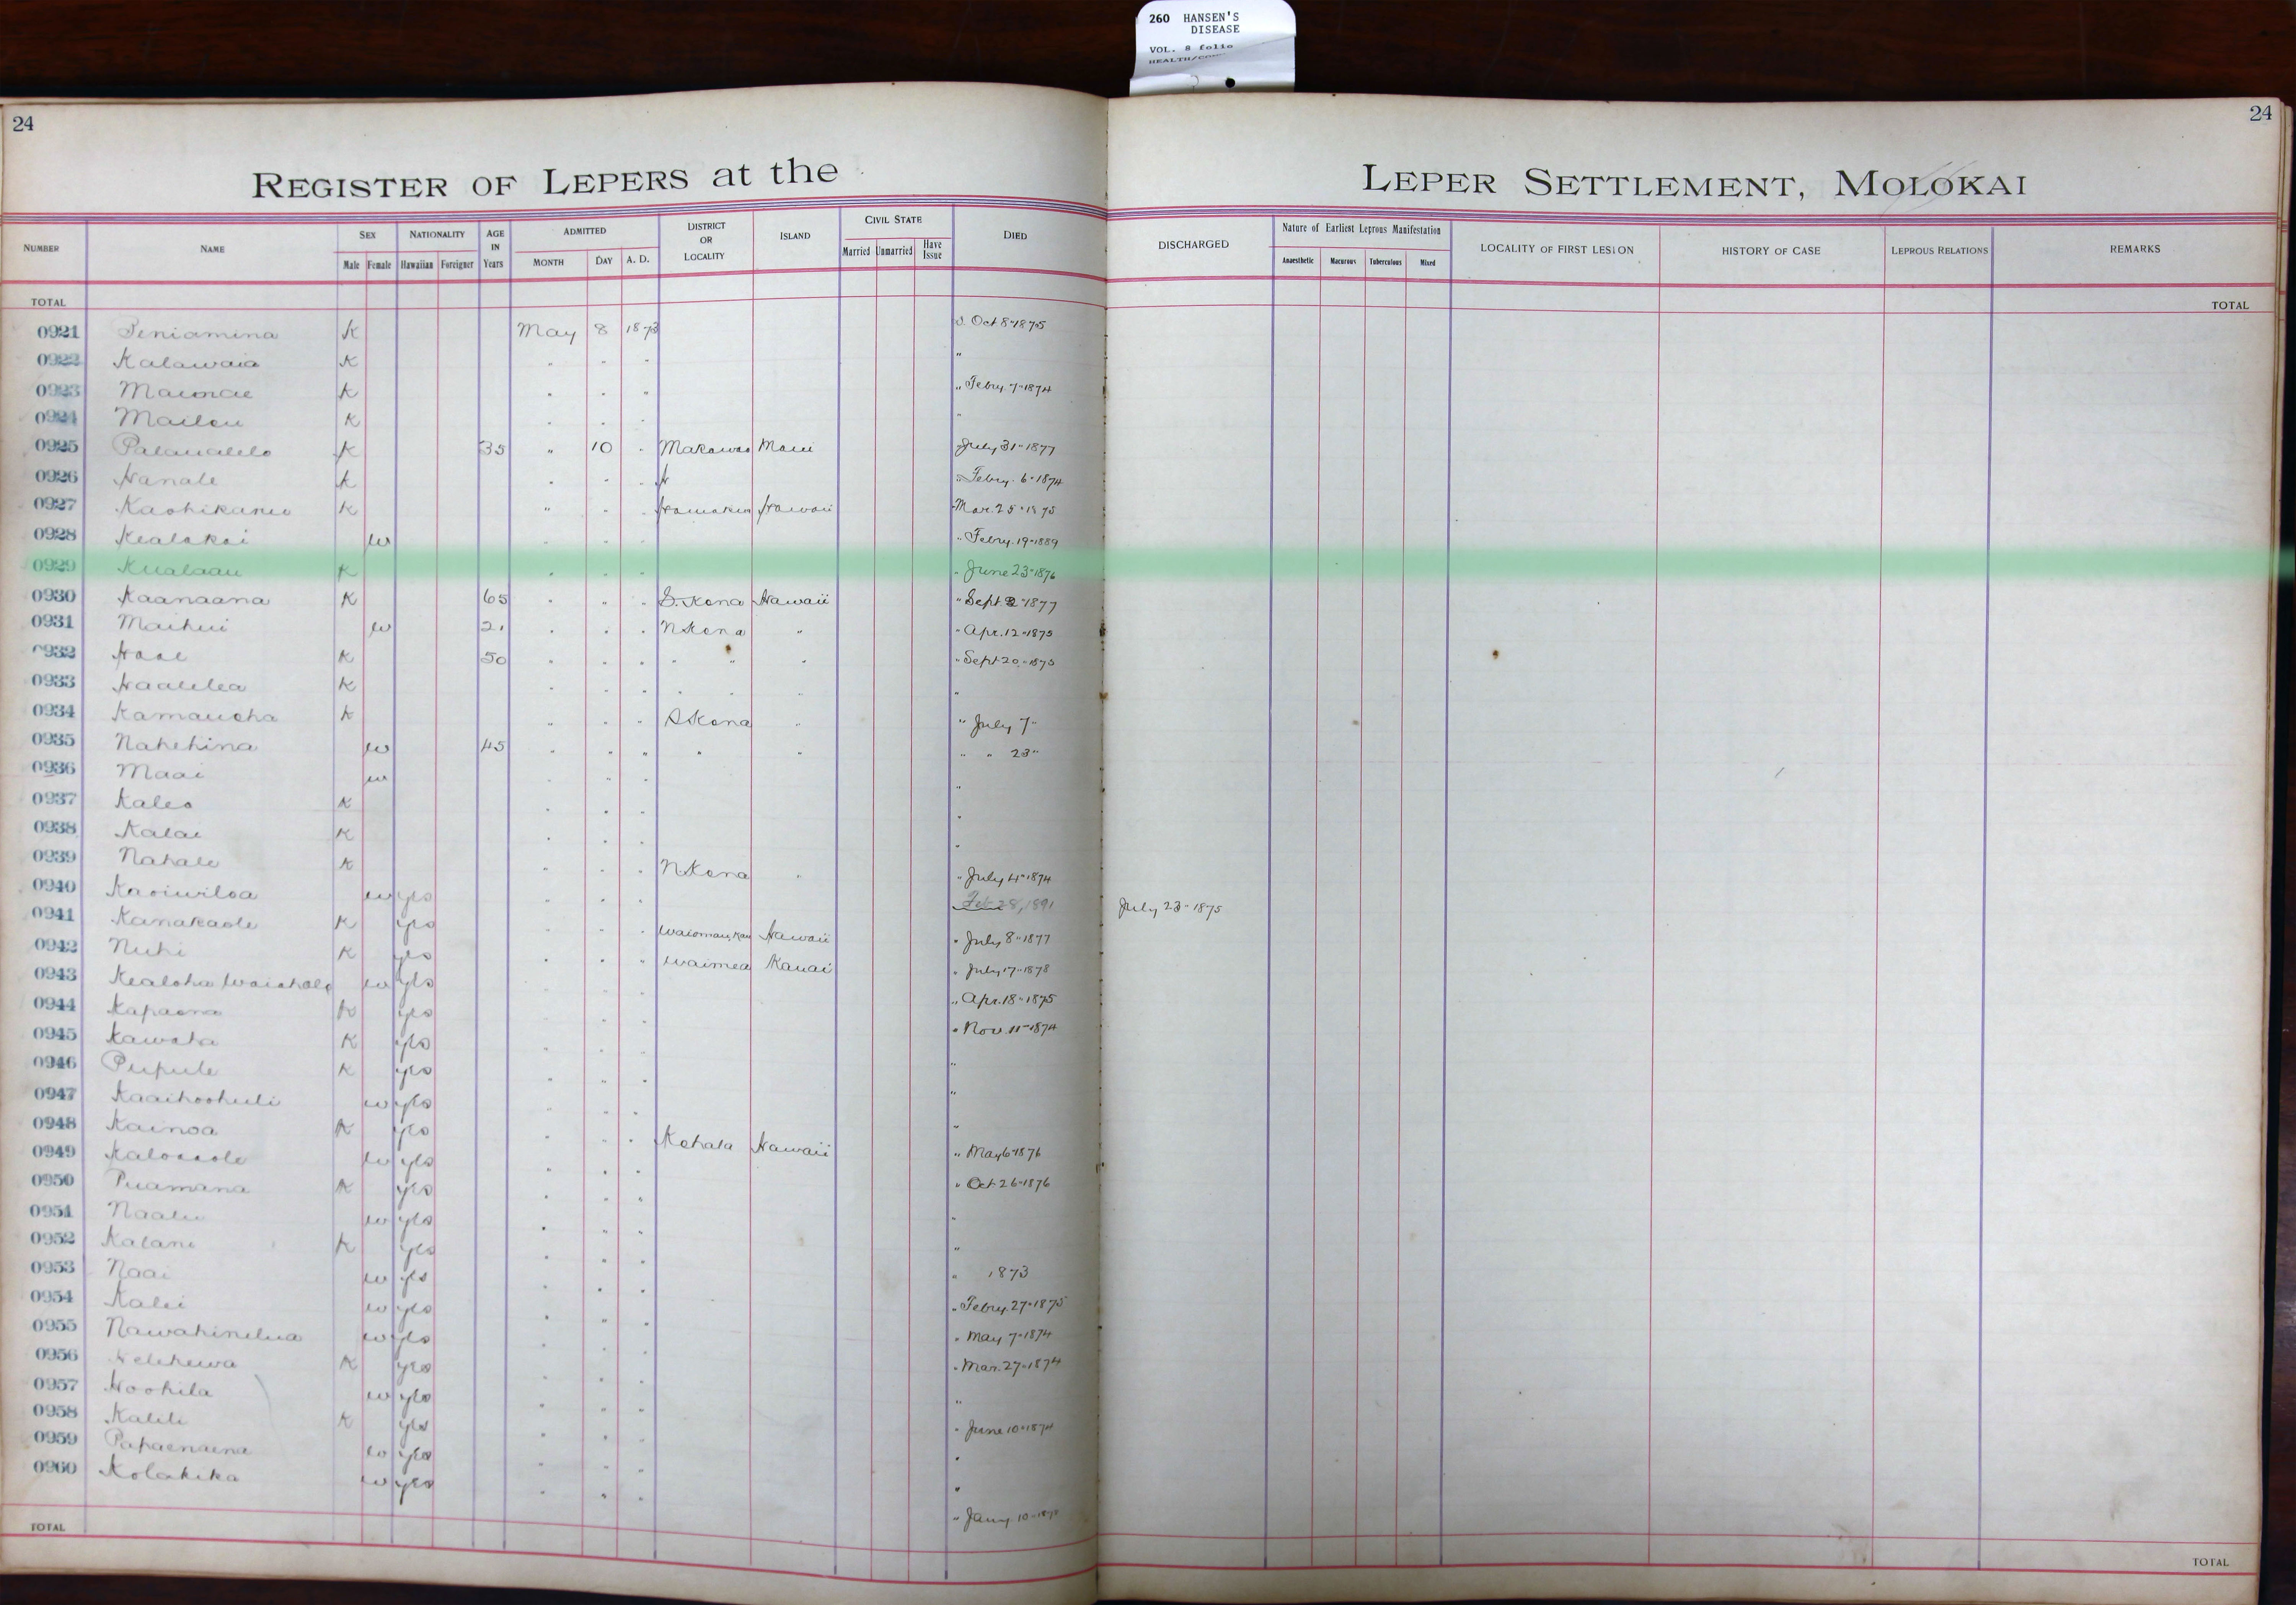 260 HANSEN'S
DISEASE
VOL. 8 folio
24
24
REGISTER OF LEPERS at the LEPER SETTLEMENT, MOLOKAI
NUMBER NAME SEX NATIONALITY AGE IN Years ADMITTED DISTRICT OR LOCALITY ISLAND CIVIL STATE DIED DISCHARGED Nature of Earliest Leprous Manifestation LOCALITY OF FIRST LESION HISTORY OF CASE LEPROUS RELATIONS REMARKS
Male Female Hawaiian Foreigner MONTH DAY A. D. Married Unmarried Have Issue Anaesthetic Macurous Tuberculous Mixed
TOTAL TOTAL
0921 Peniamina K May 8 1873 Oct 8" 1875
0922 Kalawaia K " " " "
0923 Maunae K " " " " Febry. 7" 1874
0924 Mailou K " " " "
0925 K 35 " 10 " Makawao Maui July 31" 1877
0926 Hanale K " " " H " Febry. 6" 1874
0927 Kaohikanu K " " " Hamakua Hawaii Mar. 25" 1875
0928 Kealakai w " " " " Febry. 19" 1889
0929 Kualaau K " " " " June 23" 1876
0930 Kaanaana K 65 " " " S. Kona Hawaii " Sept 2" 1877
0931 Maihui w 21 " " " N Kona " " Apr. 12" 1875
0932 K 50 " " " " " " " Sept 20" 1875
0933 Haalilea K " " " " " " "
0934 Kamauoha K " " " S Kona " " July 7"
0935 Nahehina w 45 " " " " " " " 23"
0936 Maai w " " " "
0937 Kaleo K " " " "
0938 Kalai K " " " "
0939 Nahale K " " " N Kona " " July 4" 1874
0940 Kaoiwiloa w yes " " " Feb 28, 1891 July 23" 1875
0941 Kanakaole K yes " " " Waiomau, Kau Hawaii " July 8" 1877
0942 Nuhi K yes " " " Waimea Kauai " July 17" 1878
0943 Kealoha w yes " " " Apr. 18" 1875
0944 Kapaona K yes " " " Nov. 11" 1874
0945 Kawaha K yes " " " "
0946 Pupule K yes " " " "
0947 Kaaihoohuli w yes " " " "
0948 Kainoa K yes " " " Kohala Hawaii " May 6" 1876
0949 w yes " " " Oct 26" 1876
0950 Puamana K yes " " " "
0951 Naalu w yes " " " "
0952 Kalani K yes " " " 1873
0953 Naai w yes " " " Febry. 27" 1875
0954 Kalei w yes " " " May 7" 1874
0955 Nawahinelua w yes " " " Mar. 27" 1874
0956 K yes " " " "
0957 Hoohila w yes " " " June 10" 1874
0958 Kalili K yes " " " "
0959 Papaenaena w yes " " " "
0960 Kolakika w yes " " " Jany. 10"
TOTAL TOTAL